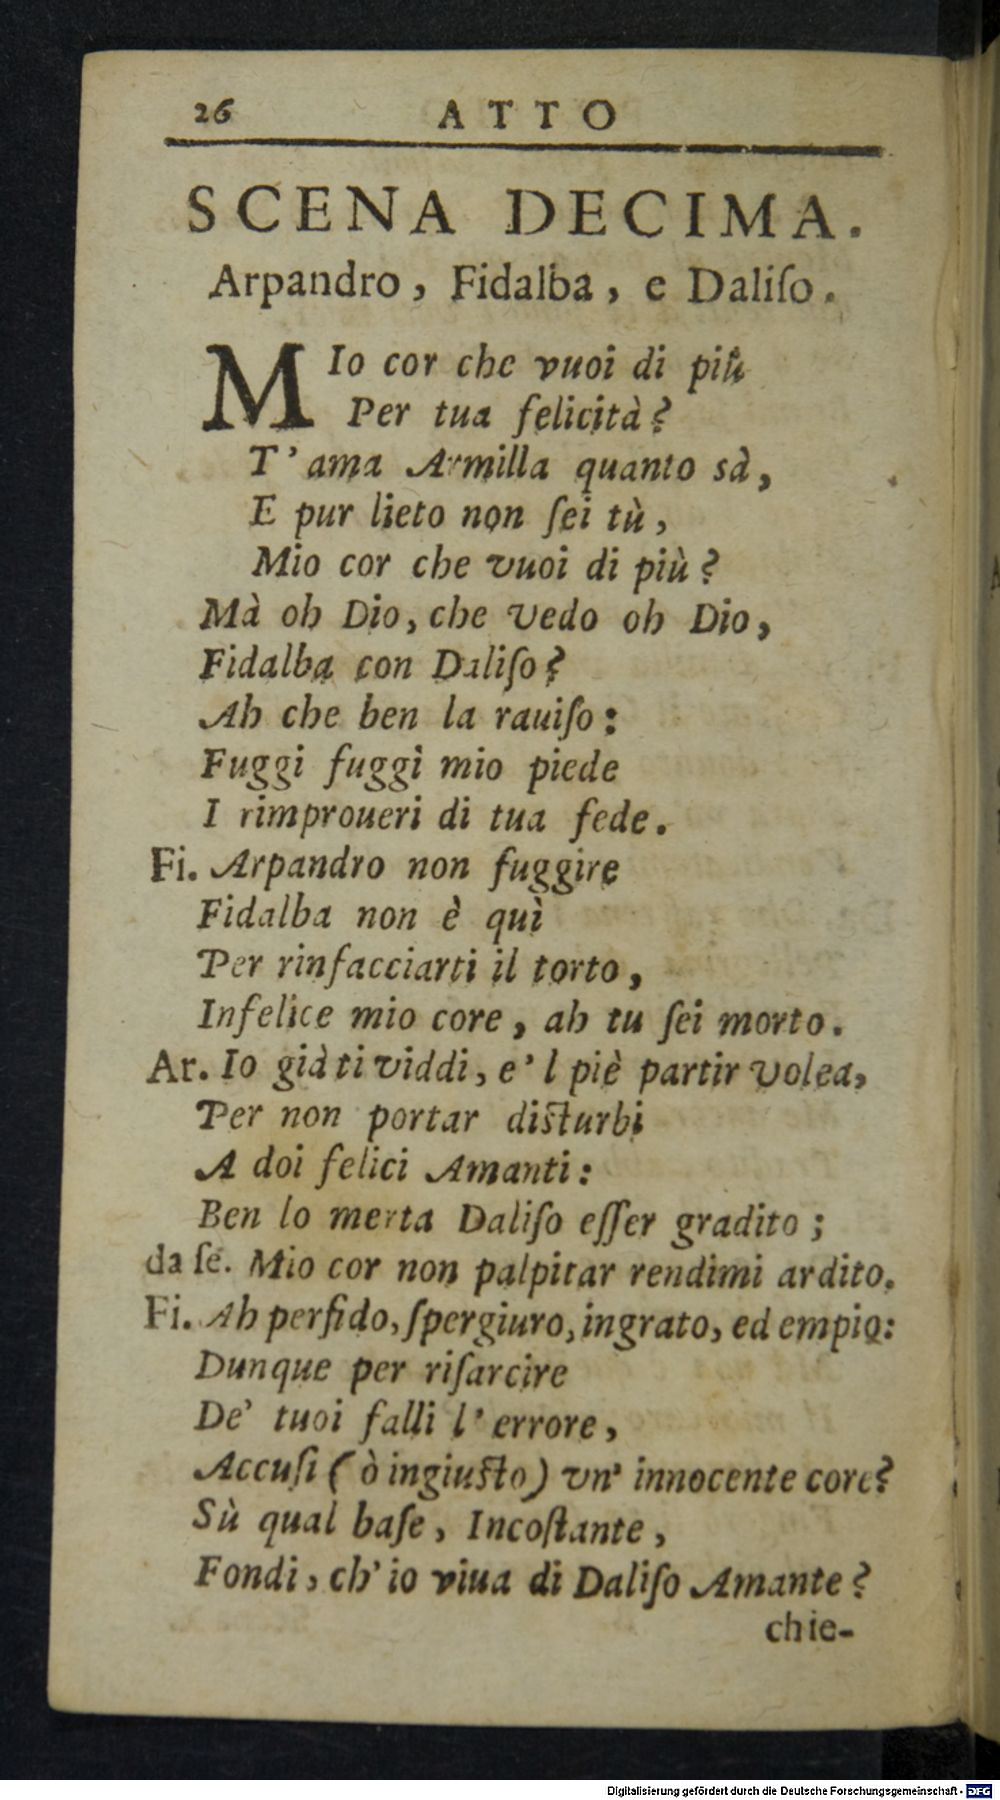 26 ATTO
SCENA DECIMA.
Arpandro, Fidalba, e Daliſo.
MIo cor che vuoi di più
Per tua felicità?
T'ama Armilla quanto sà,
E pur lieto non ſei tù,
Mio cor che vuoi di più?
Mà oh Dio, che vedo oh Dio,
Fidalba con Daliſo?
Ah che ben la rauiſo:
Fuggi fuggi mio piede
I rimproueri di tua fede.
Fi. Arpandro non fuggire
Fidalba non è quì
Per rinfacciarti il torto,
Infelice mio core, ah tu ſei morto.
Ar. Io già ti viddi, e'l piè partir volea,
Per non portar diſturbi
A doi felici Amanti:
Ben lo merta Daliſo eſſer gradito;
da ſe. Mio cor non palpitar rendimi ardito.
Fi. Ah perfido, ſpergiuro, ingrato, ed empio:
Dunque per riſarcire
De' tuoi falli l'errore,
Accuſi (ò ingiuſto) vn' innocente core?
Sù qual baſe, Incoſtante,
Fondi, ch'io viua di Daliſo Amante?
chie-
Digitalisierung gefördert durch die Deutsche Forschungsgemeinschaft - DFG